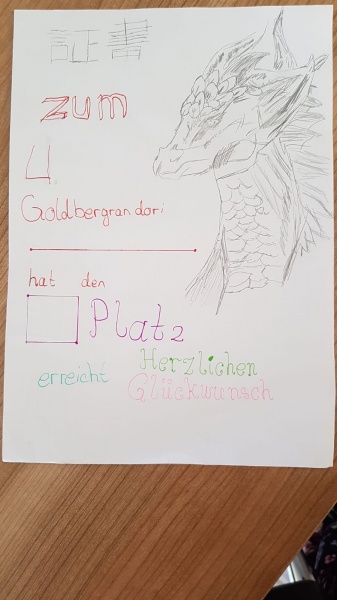 証書
zum
4.
Goldbergrandori
hat den
Platz
erreicht
Herzlichen
Glückwunsch